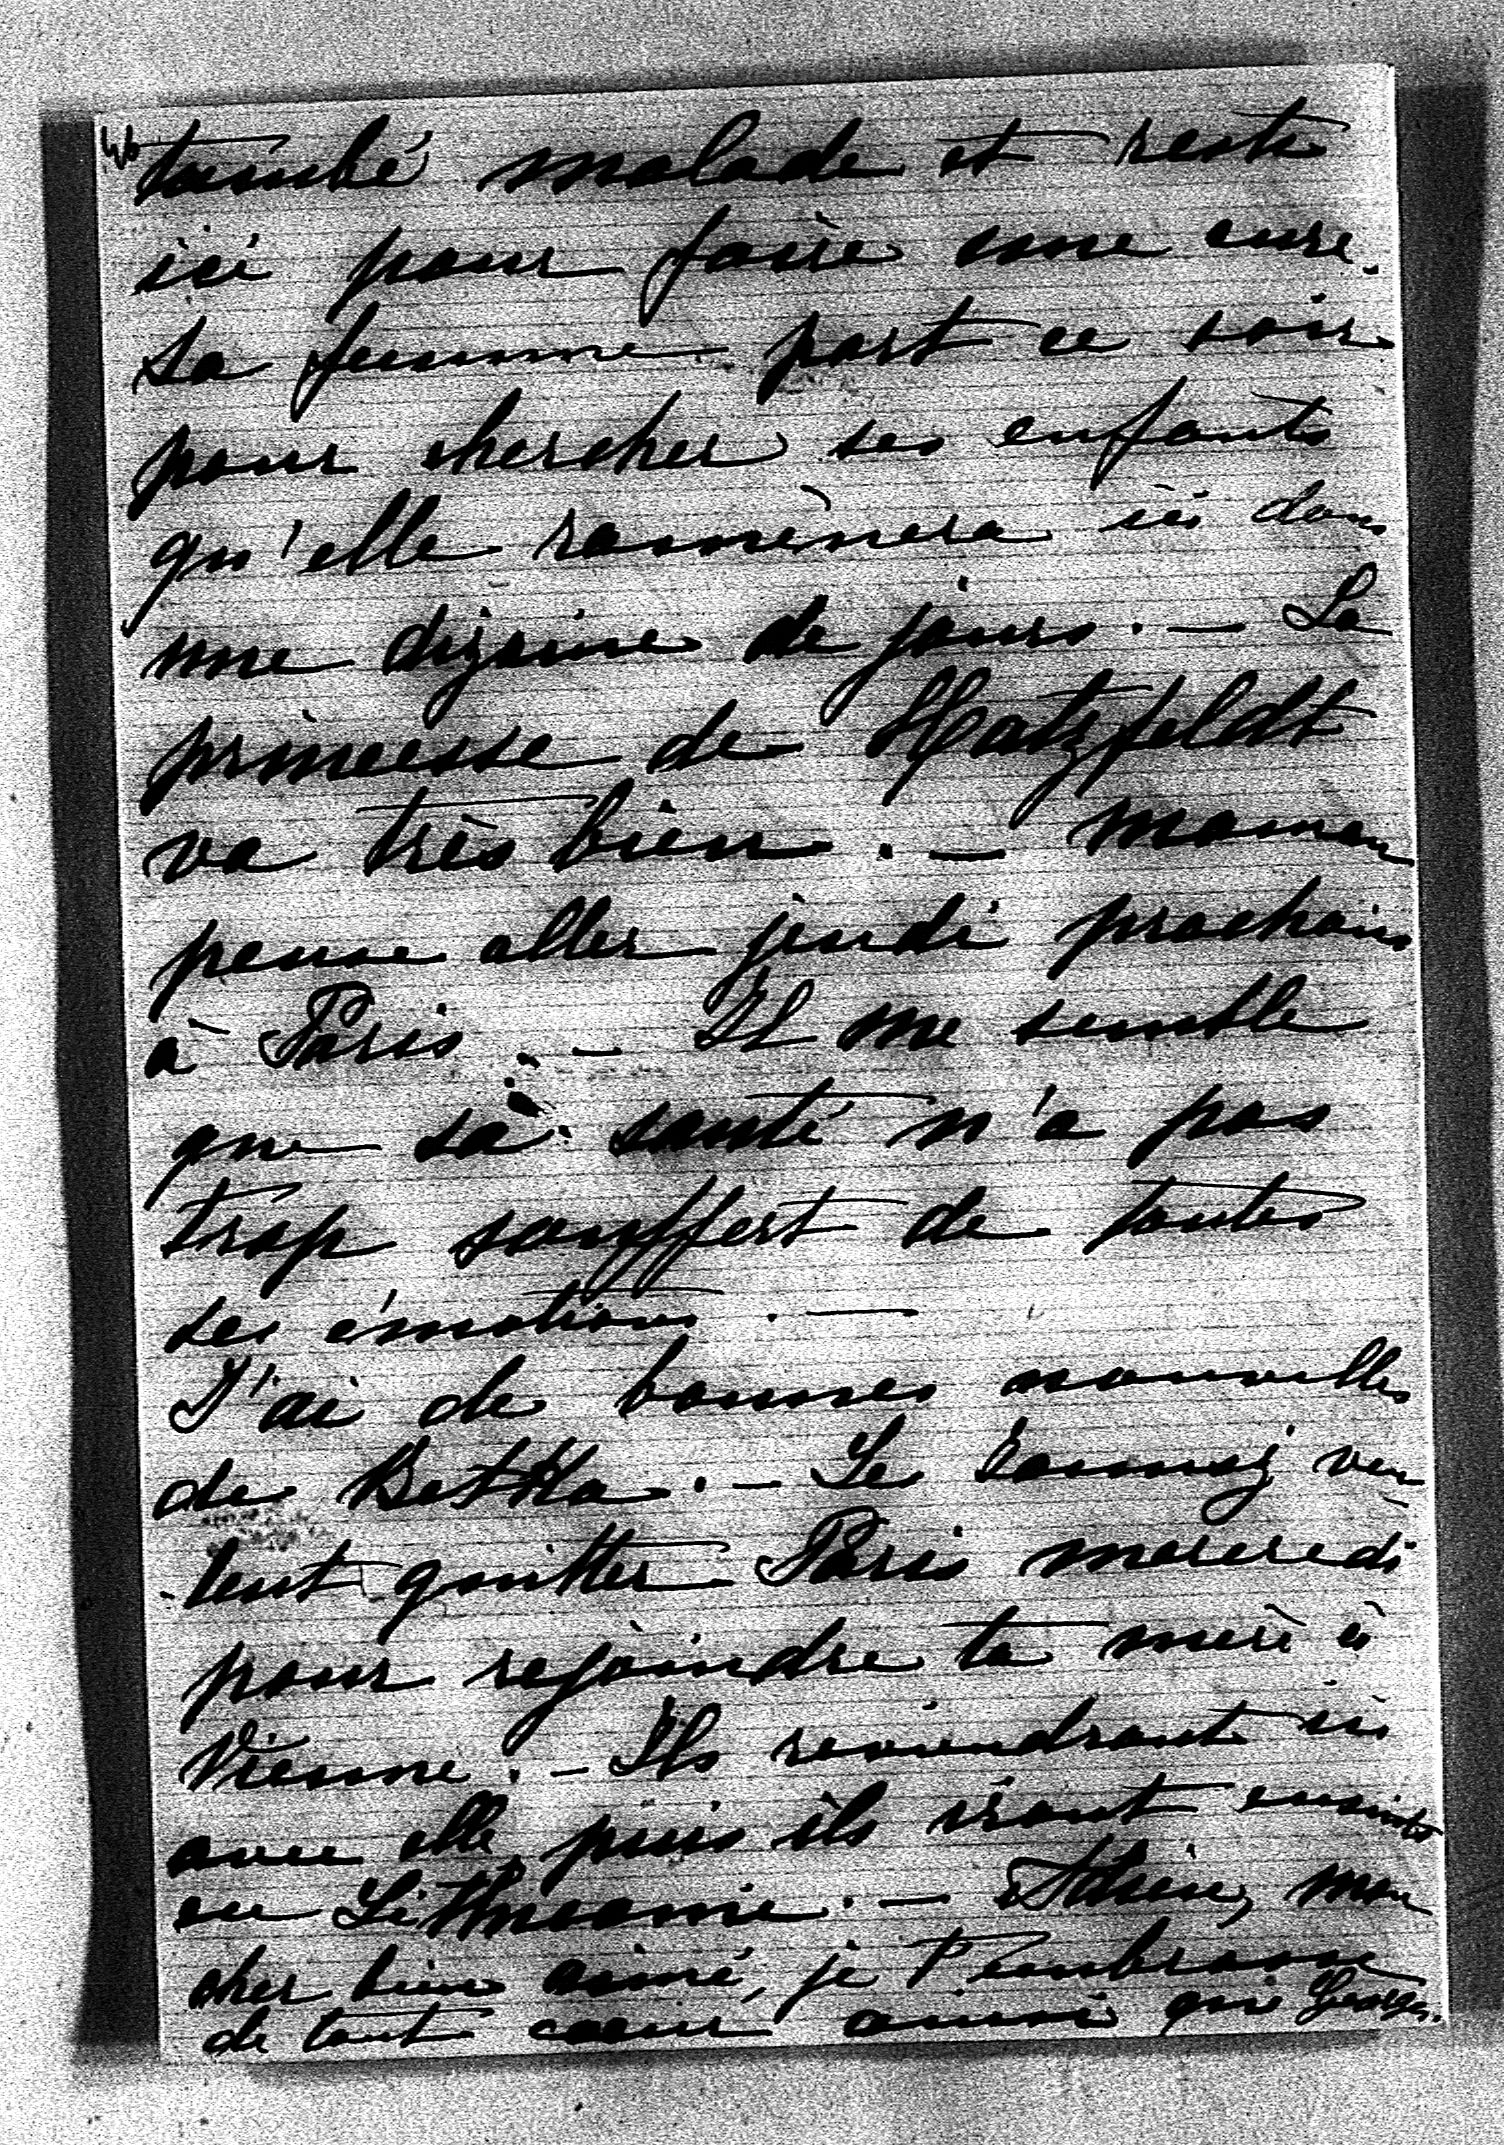 tombé malade et reste
ici pour faire une cure.
Sa femme part ce soir
pour chercher ses enfants
qu'elle ramènera ici dans
une dizaine de jours. — La
princesse de Hatzfeldt
va très bien. — Maman
pense aller jeudi prochain
à Paris. — Il me semble
que sa santé n'a pas
trop souffert de toutes
ses émotions. —
J'ai de bonnes nouvelles
de Betka. — Les veu
lent quitter Paris mercredi
pour rejoindre ta mère à
Vienne. — Ils reviendront ici
avec elle puis ils iront ensuite
en Lithuanie. — Adieu, mon
cher bien aimé, je t'embrasse
de tout cœur ainsi que Georges.